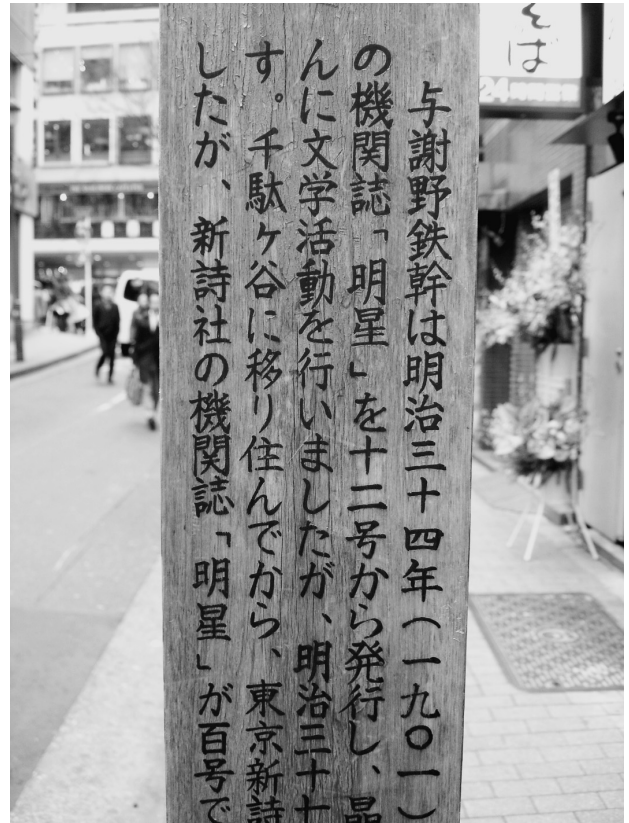 与謝野鉄幹は明治三十四年(一九〇一)
の機関誌「明星」を十二号から発行し、晶
んに文学活動を行いましたが、明治三十七
す。千駄ヶ谷に移り住んでから、東京新詩
したが、新詩社の機関誌「明星」が百号で
そば
24